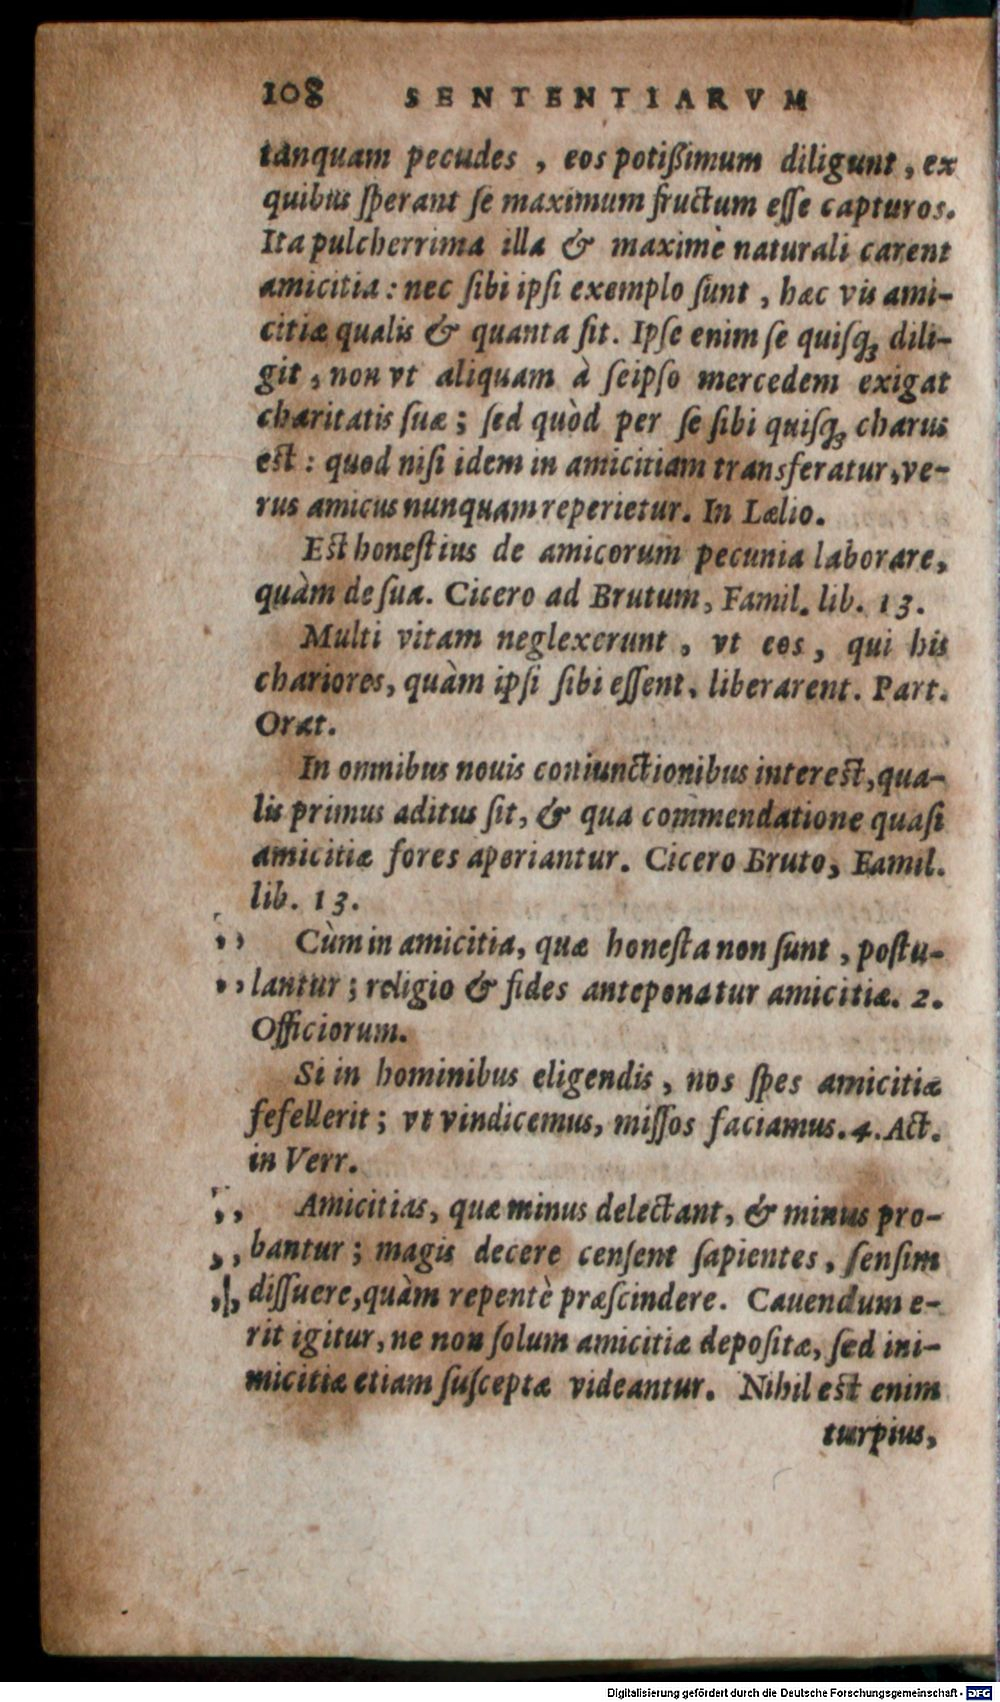 108 SENTENTIARVM
tanquam pecudes , eos potißimum diligunt , ex
quibus ſperant ſe maximum fructum eſſe capturos.
Ita pulcherrima illa & maximè naturali carent
amicitia : nec ſibi ipſi exemplo ſunt , hæc vis ami-
citiæ qualis & quanta ſit. Ipſe enim ſe quiſq; dili-
git , non vt aliquam à ſeipſo mercedem exigat
charitatis ſuæ ; ſed quòd per ſe ſibi quiſq; charus
est : quod niſi idem in amicitiam transferatur, ve-
rus amicus nunquam reperietur. In Lælio.
Est honeſtius de amicorum pecunia laborare,
quàm de ſua. Cicero ad Brutum, Famil. lib. 13.
Multi vitam neglexerunt , vt eos , qui his
chariores, quàm ipſi ſibi eſſent, liberarent. Part.
Orat.
In omnibus nouis coniunctionibus interest, qua-
lis primus aditus ſit, & qua commendatione quaſi
amicitiæ fores aperiantur. Cicero Bruto, Famil.
lib. 13.
,, Cùm in amicitia, quæ honeſta non ſunt , poſtu-
,, lantur ; religio & fides anteponatur amicitiæ. 2.
Officiorum.
Si in hominibus eligendis , nos ſpes amicitiæ
fefellerit ; vt vindicemus, miſſos faciamus. 4. Act.
in Verr.
,, Amicitias, quæ minus delectant, & minus pro-
,, bantur ; magis decere cenſent ſapientes , ſenſim
,, diſſuere, quàm repentè præſcindere. Cauendum e-
rit igitur, ne non ſolum amicitiæ depoſitæ, ſed ini-
micitiæ etiam ſuſceptæ videantur. Nihil est enim
turpius,
Digitalisierung gefördert durch die Deutsche Forschungsgemeinschaft - DFG